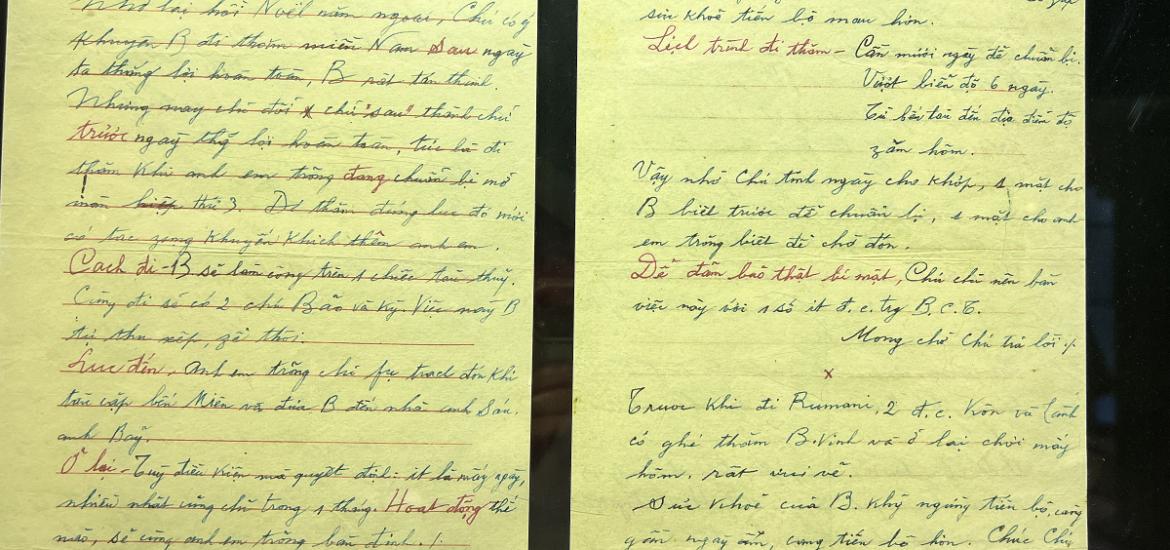 Nhớ lại hồi Noël năm ngoái, Chú có ý
khuyên B đi thăm miền Nam sau ngày
ta thắng lợi hoàn toàn, B rất tán thành.
Nhưng nay chú đổi chữ "sau" thành chữ
trước ngày thắg lợi hoàn toàn, tức là đi
thăm khi anh em trong đang chuẩn bị mở
màn hiệp thứ 3. Đi thăm đúng lúc đó mới
có tác zụng khuyến khích thêm anh em.
Cách đi - B sẽ làm công trên 1 chiếc tàu thuỷ.
Cùng đi sẽ có 2 chú Bảo và Kỳ. Việc này B
tự thu xếp, zễ thôi.
Lúc đến. Anh em trong chỉ fụ trách đón khi
tàu cặp bến Miên và đưa B đến nhà anh Sáu.
anh Bảy.
Ở lại - Tuỳ điều kiện mà quyết định: ít là mấy ngày,
nhiều nhất cũng chừ trong 1 tháng. Hoạt động thế
nào, sẽ cùng anh em trong bàn định ./.
sức khoẻ tiến bộ mau hơn.
Lịch trình đi thăm - Cần mười ngày để chuẩn bị.
Vượt biển độ 6 ngày.
Từ bến tàu đến địa điểm độ
zăm hôm.
Vậy nhờ Chú tính ngày cho khớp, 1 mặt cho
B biết trước để chuẩn bị, 1 mặt cho anh
em trong biết để chờ đón.
Để đảm bảo thật bí mật, Chú chỉ nên bàn
việc này với 1 số ít đ.c. trg B.C.T.
Mong chờ Chú trả lời ./.
x
Trước khi đi Rumani, 2 đ.c. Kôn và
có ghé thăm B. Vinh và ở lại chơi mấy
hôm. rất vui vẻ.
Sức khoẻ của B. khg ngừng tiến bộ, càng
gần ngày ấm, càng tiến bộ hơn. Chúc Chú